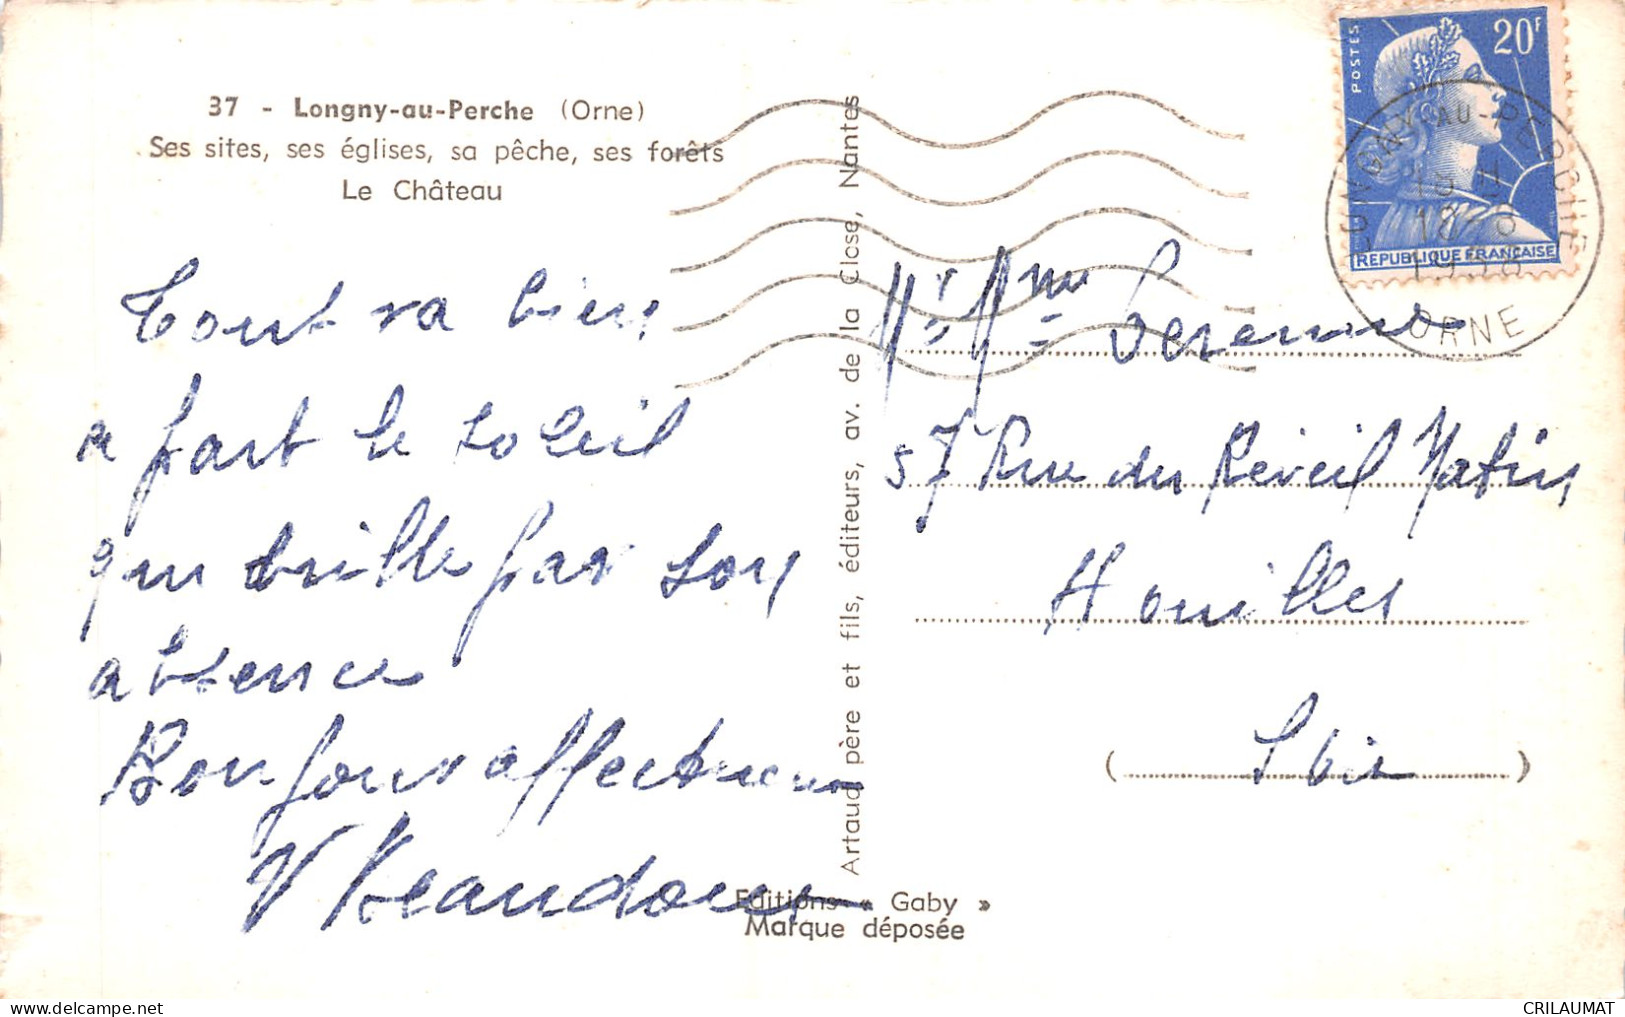 37 - Longny-au-Perche (Orne)
Ses sites, ses églises, sa pêche, ses forêts
Le Château
Tout va bien
a part le soleil
qui brille par son
absence
Bonjours affectueux
Artaud père et fils, éditeurs, av. de la Close, Nantes
Editions « Gaby »
Marque déposée
POSTES
20F
REPUBLIQUE FRANÇAISE
LONGNY-AU-PERCHE
18-8
1958
ORNE
Mr Mme
57 Rue du Réveil Matin
Houilles
( S Oise )
CRILAUMAT